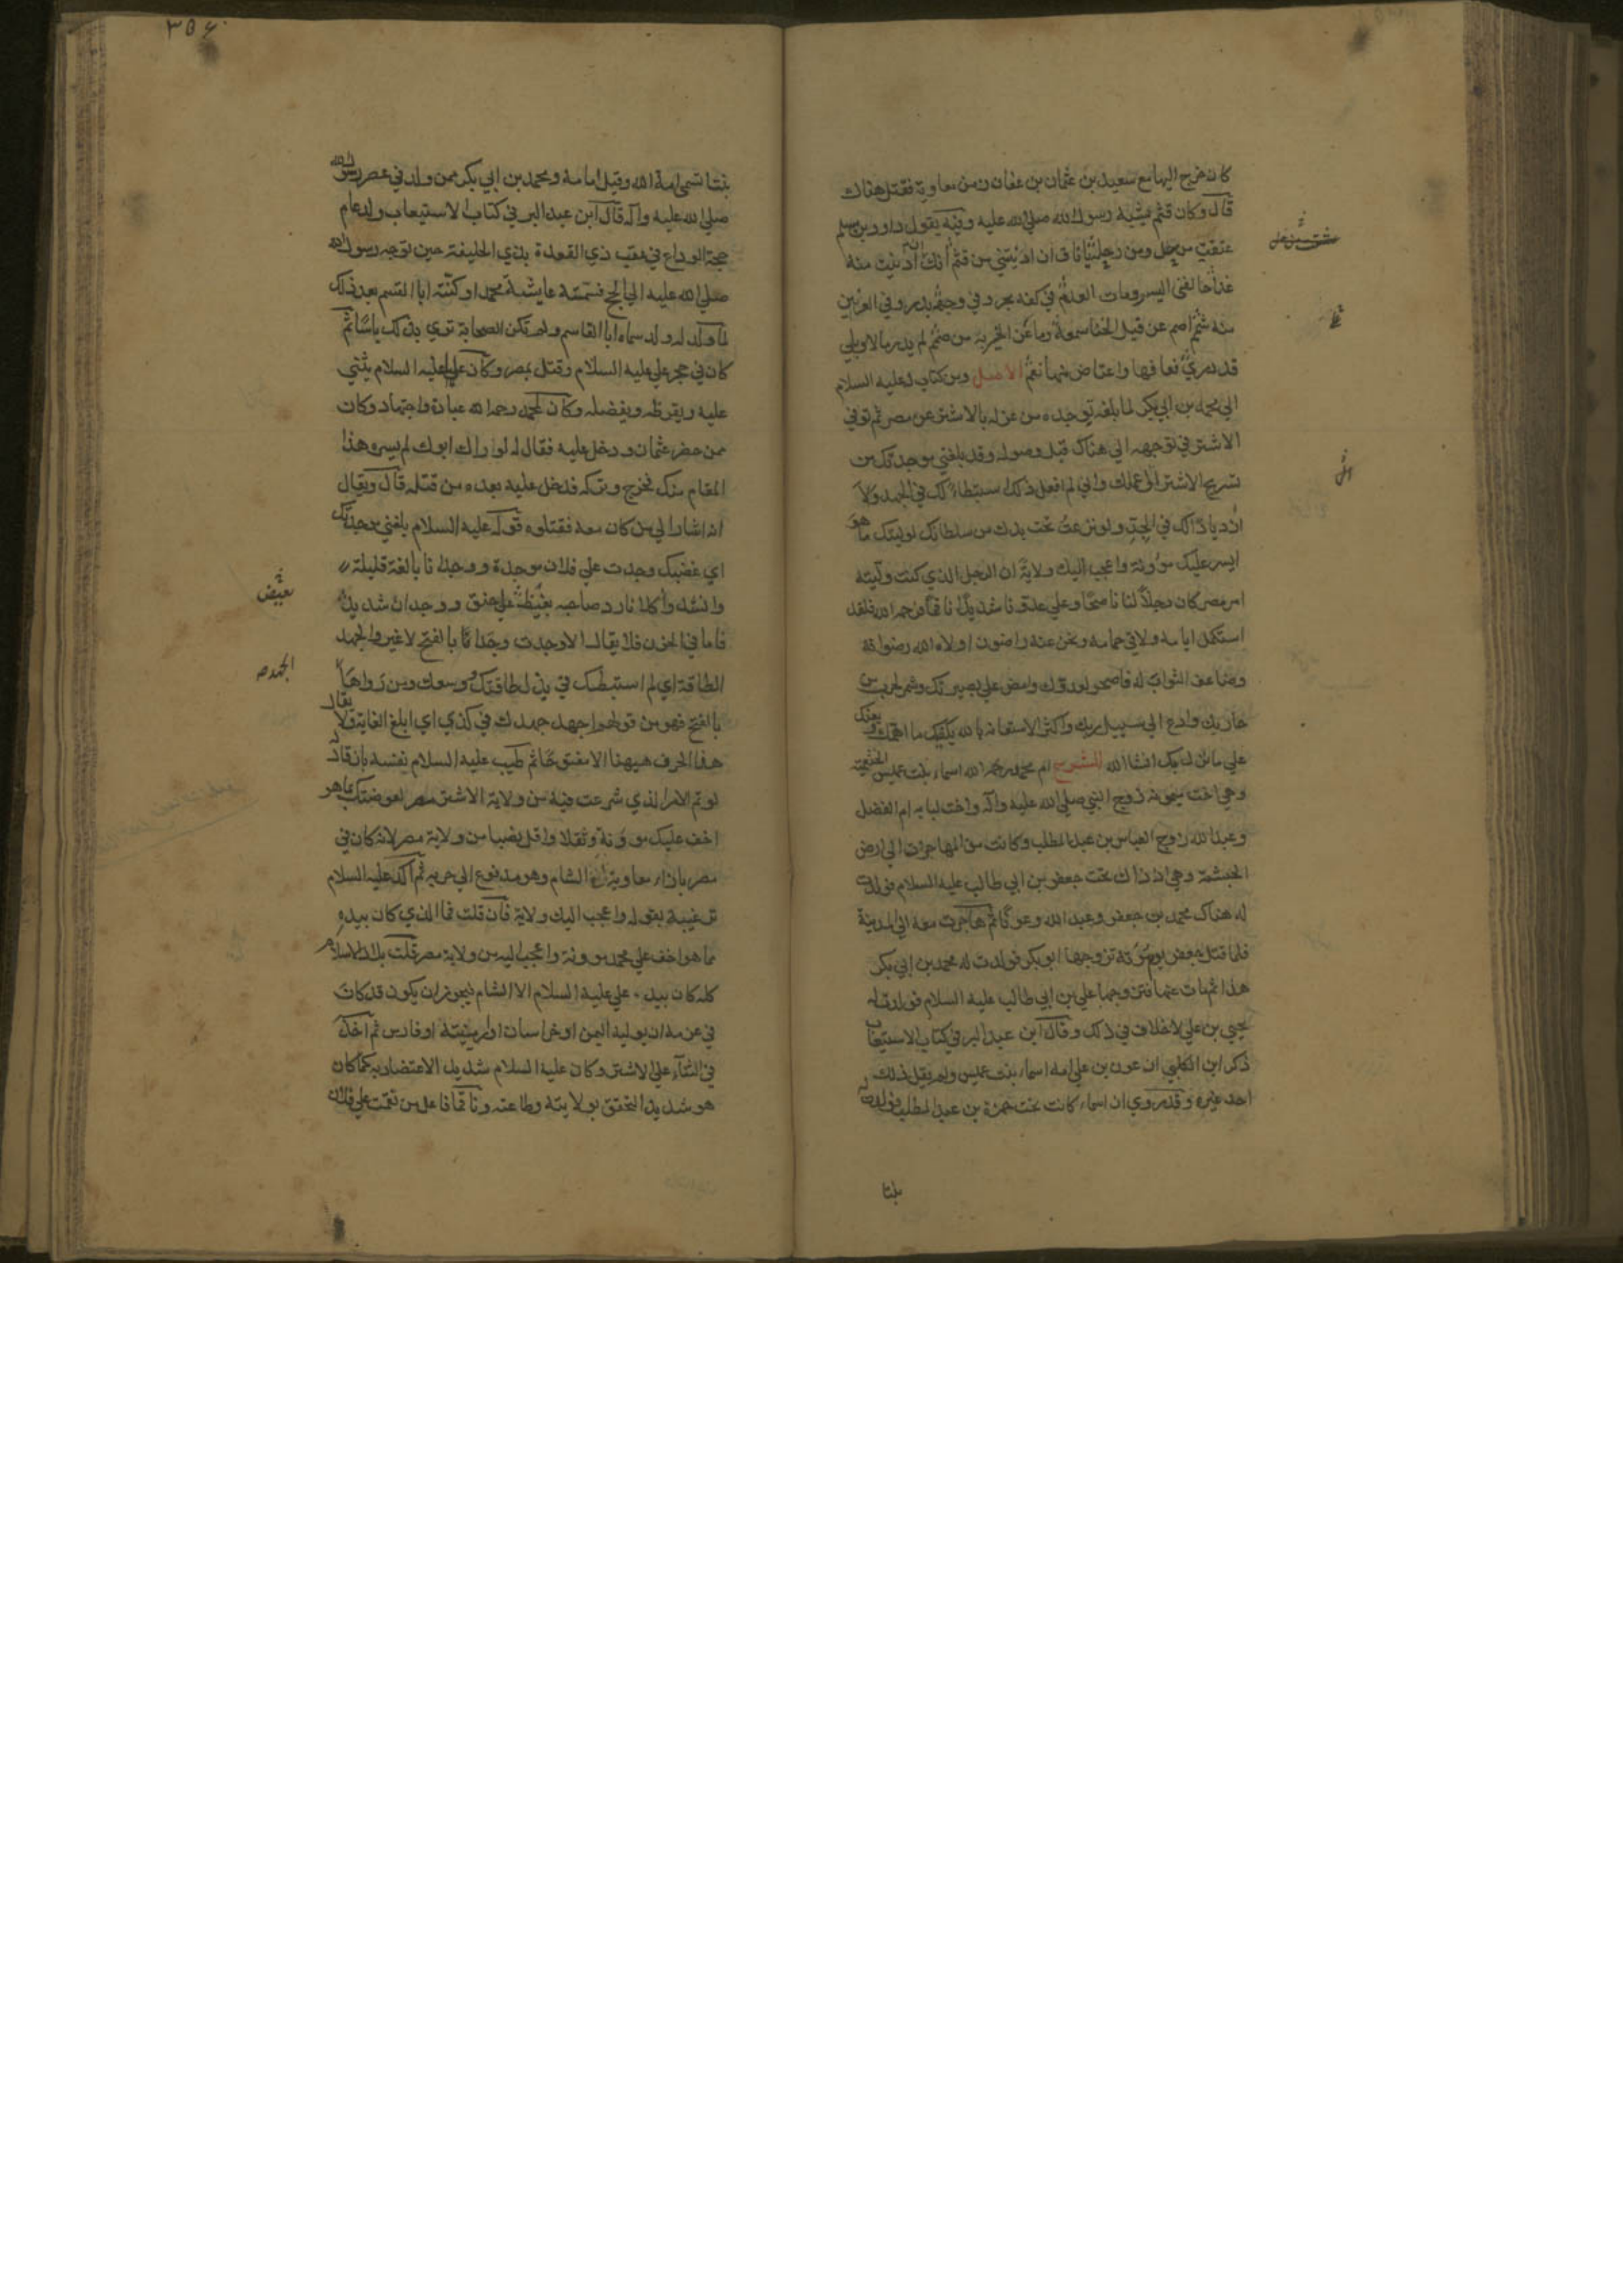 كان خرج اليها مع سعيد بن عثمان بن عفان زمن معاوية فقتل هناك
قال وكان قثم يشبه رسول الله صلي الله عليه وفيه يقول داود بن سلم
عتقت من حل ومن رحلة يا ناق ان ادنيتني من قثم انك ان ادنيت منه
غدا حالفني اليسر ومات العدم في كفه بحر وفي وجهه بدر وفي العرنين
منه شمم اصم عن قيل الخنا سمعه وما عن الخير به من صمم لم يدر ما لا وبلي
قد دري فعافها واعتاض منها نعم الاصل ومن كتاب له عليه السلام
الي محمد بن ابي بكر لما بلغه توجده من عزله بالاشتر عن مصر ثم توفي
الاشتر في توجهه الي هناك قبل وصوله وقد بلغني موجدتك من
تسريح الاشتر الي عملك واني لم افعل ذلك استبطاء لك في الجهد ولا
ازديادا لك في الجد ولو نزعت ما تحت يدك من سلطانك لوليتك ما هو
ايسر عليك مؤونة واعجب اليك ولاية ان الرجل الذي كنت وليته
امر مصر كان رجلا لنا ناصحا وعلي عدونا شديدا ناقما فرحمه الله فلقد
استكمل ايامه ولاقي حمامه ونحن عنه راضون اولاه الله رضوانه
وضاعف الثواب له فاصحر لعدوك وامض علي بصيرتك وشمر لحرب من
حاربك وادع الي سبيل ربك واكثر الاستعانة بالله يكفيك ما اهمك ويعنك
علي ما ينزل بك انشا الله الشرح ام محمد رحمه الله اسماء بنت عميس الخثعمية
وهي اخت ميمونة زوج النبي صلي الله عليه وآله واخت لبابه ام الفضل
وعبد الله زوج العباس بن عبد المطلب وكانت من المهاجرات الي ارض
الحبشة وهي اذ ذاك تحت جعفر بن ابي طالب عليه السلام فولدت
له هناك محمد بن جعفر وعبد الله وعونا ثم هاجرت معه الي المدينة
فلما قتل جعفر يوم مؤتة تزوجها ابو بكر فولدت له محمد بن ابي بكر
هذا ثم مات عنها فتزوجها علي بن ابي طالب عليه السلام فولدت له
يحيي بن علي لا خلاف في ذلك وقال ابن عبد البر في كتاب الاستيعاب
ذكر ابن الكلبي ان عون بن علي امه اسماء بنت عميس ولم يقل ذلك
احد غيره وقد روي ان اسماء كانت تحت حمزة بن عبد المطلب فولدت له
بنتا
بنتا تسمي امة الله وقيل امامه ومحمد بن ابي بكر ممن ولد في عصر رسول الله
صلي الله عليه وآله قال ابن عبد البر في كتاب الاستيعاب ولد عام
حجة الوداع في عقب ذي القعدة بذي الحليفة حين توجه رسول الله
صلي الله عليه الي الحج فسمته عايشة محمدا وكنته ابا القسم بعد ذلك
لما ولد له ولد سماه ابا القاسم ولم تكن الصحابة تري بذلك باسا ثم
كان في حجر علي عليه السلام وقتل بمصر وكان علي عليه السلام يثني
عليه ويقرظه ويفضله وكان لمحمد رحمه الله عبادة واجتهاد وكان
ممن حضر عثمان ودخل عليه فقال له لو راك ابوك لم يسره هذا
المقام منك فخرج وتركه فدخل عليه بعده من قتله قال ويقال
انه اشار الي من كان معه فقتلوه قوله عليه السلام بلغني موجدتك
اي غضبك وجدت علي فلان موجدة ووجدانا بالغة قليلة
وانشد كلانا رد صاحبه بغيظ علي حنق ووجدان شديد
فاما في الحزن فلا يقال الا وجدت وجدا بالفتح لا غير والجهد
الطاقة اي لم استبطئك في بذل طاقتك ووسعك ومن رواها
بالفتح فهو من قولهم اجهد جهدك في كذي اي ابلغ الغاية ولا يقال
هذا الحرف هيهنا الا مفتوحا ثم طيب عليه السلام نفسه بان قال
لو تم الامر الذي شرعت فيه من ولاية الاشتر مصر لعوضتك بما هو
اخف عليك موونة وثقلا واقل نصبا من ولاية مصر لانه كان في
مصر بازاء معاوية الشام وهو مدفوع الي حربه ثم اكد عليه السلام
ترغيبه بقوله واعجب اليك ولاية فان قلت فما الذي كان بيده
مما هو اخف علي محمد موونة واعجب اليه من ولاية مصر قلت بلاد الاسلام
كله كان بيد علي عليه السلام الا الشام فيجوز ان يكون قد كان
في عزمه ان يوليه اليمن او خراسان او ارمينية او فارس ثم اخذ
في الثناء علي الاشتر وكان عليه السلام شديد الاعتضاد به كما كان
هو شديد التحقق بولايته وطاعته وناقما فاعل من نقمت علي فلان
الجهد
٣٥٤